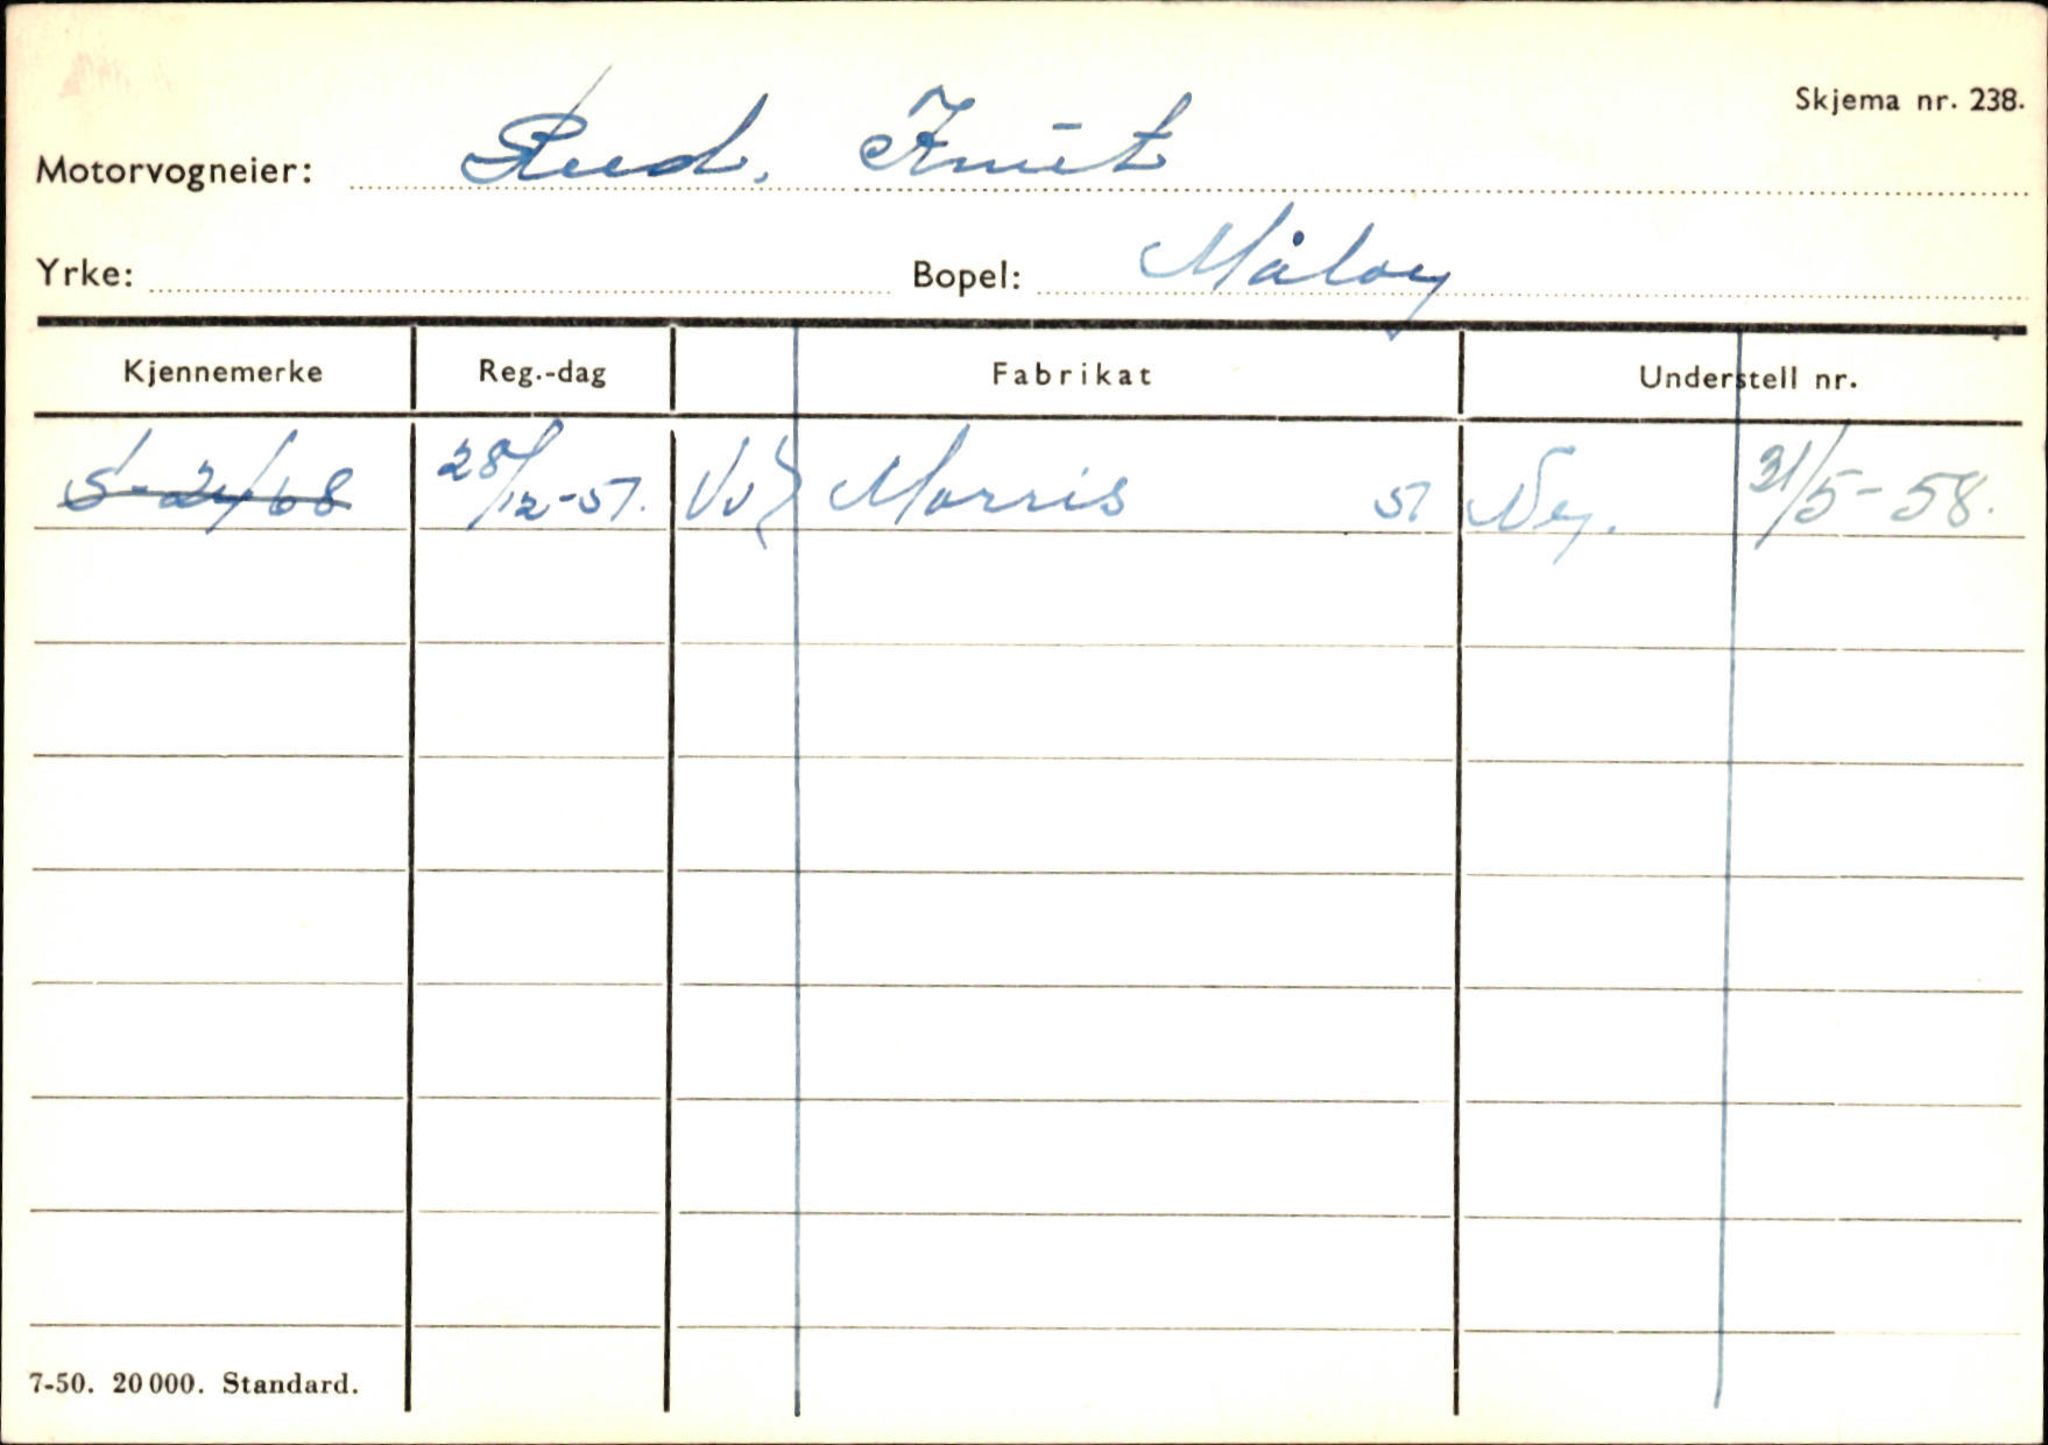 Skjema nr. 238.
Motorvogneier: Rued, Knut
Yrke: Bopel: Måloy
Kjennemerke Reg.-dag Fabrikat Understell nr.
28/12-57. Vv Morris 57 Ny. 31/5-58.
7-50. 20 000. Standard.